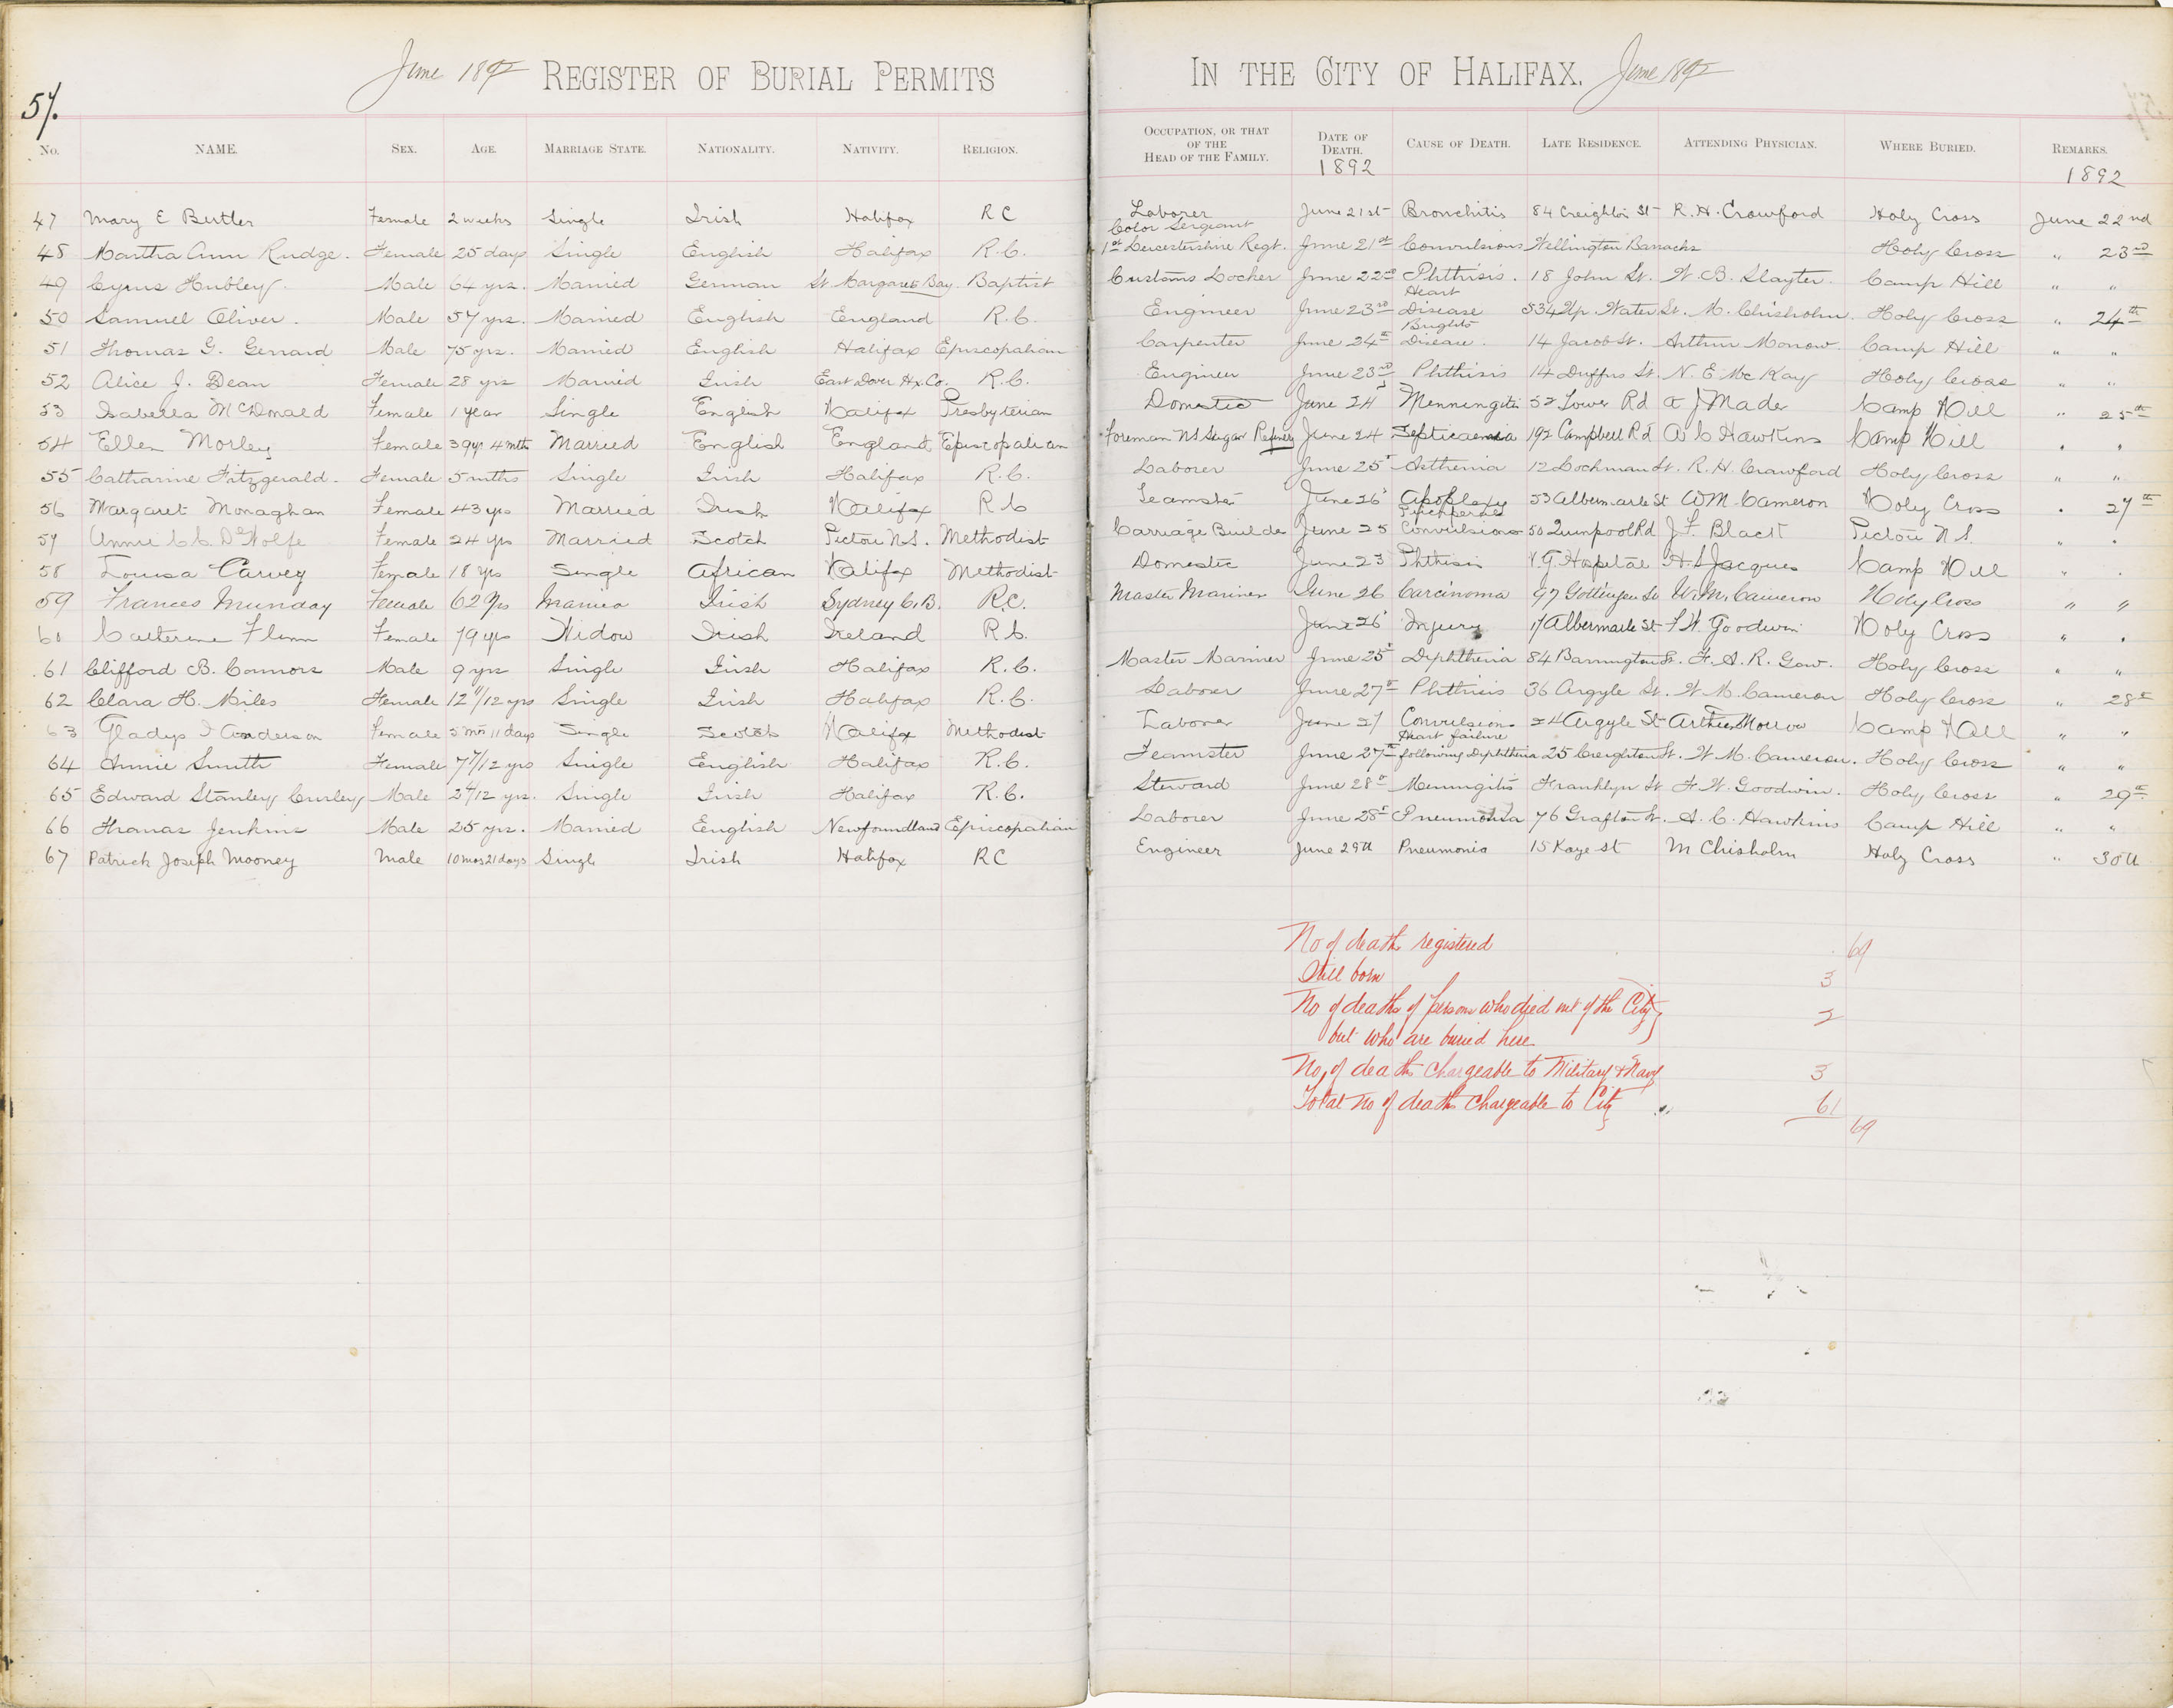 57.
June 1892 REGISTER OF BURIAL PERMITS IN THE CITY OF HALIFAX. June 1892
No. NAME. SEX. AGE. MARRIAGE STATE. NATIONALITY. NATIVITY. RELIGION. OCCUPATION, OR THAT OF THE HEAD OF THE FAMILY. DATE OF DEATH. 1892 CAUSE OF DEATH. LATE RESIDENCE. ATTENDING PHYSICIAN. WHERE BURIED. REMARKS. 1892
47 Mary E Butler Female 2 weeks Single Irish Halifax R C Laborer June 21st Bronchitis 84 Creighton St R. H. Crawford Holy Cross June 22nd
48 Martha Ann Rudge. Female 25 days Single English Halifax R.C. Color Sergeant 1st Leicestershire Regt. June 21st Convulsions Wellington Barracks Holy Cross " 23rd
49 Cyrus Hubley. Male 64 yrs. Married German St Margarets Bay. Baptist Customs Locker June 22nd Phthisis. 18 John St. W. B. Slayter. Camp Hill " "
50 Samuel Oliver. Male 57 yrs. Married English England R.C. Engineer June 23rd Heart Disease 534 Up. Water St. M. Chisholm. Holy Cross " 24th
51 Thomas G. Gerrard Male 75 yrs. Married English Halifax Episcopalian Carpenter June 24th Brights Disease. 14 Jacob St. Arthur Morrow. Camp Hill " "
52 Alice J. Dean Female 28 yrs Married Irish East Dover Hx. Co. R.C. Engineer June 23rd Phthisis 14 Duffus St. N. E. McKay Holy Cross " "
53 Isabella McDonald Female 1 year Single English Halifax Presbyterian Domestic June 24 Menningitis 52 Lower Rd A J Mader Camp Hill " 25th
54 Ellen Morley Female 39 yr 4 mth Married English England Episcopalian Foreman NS Sugar Refinery June 24 Septicaemia 192 Campbell Rd A C Hawkins Camp Hill " "
55 Catharine Fitzgerald. Female 5 mths Single Irish Halifax R.C. Laborer June 25t Asthenia 12 Lockman St. R. H. Crawford Holy Cross " "
56 Margaret Monaghan Female 43 yrs Married Irish Halifax R C Teamster June 26t Apoplexy 53 Albermarle St W M. Cameron Holy Cross " 27th
57 Annie C. C. DeWolfe Female 24 yrs Married Scotch Pictou N.S. Methodist Carriage Builder June 25 Puerperal Convulsions 50 Quinpool Rd J F Black Pictou N S. " "
58 Louisa Carvey Female 18 yrs Single African Halifax Methodist Domestic June 23 Phthisis V. G. Hospital H. S Jacques Camp Hill " "
59 Frances Munday Female 62 Yrs Married Irish Sydney C.B. R.C. Master Mariner June 26 Carcinoma 97 Gottingen St W. M. Cameron Holy Cross " "
60 Catherine Flinn Female 79 yrs Widow Irish Ireland R C. June 26t Injury 17 Albermarle St F. W. Goodwin Holy Cross " "
61 Clifford B. Connors Male 9 yrs Single Irish Halifax R.C. Master Mariner June 25t Diphtheria 84 Barrington St. F. A. R. Gow. Holy Cross " "
62 Clara H. Miles Female 12 11/12 yrs Single Irish Halifax R.C. Laborer June 27th Phthisis 36 Argyle St. W M. Cameron Holy Cross " 28t
63 Gladys J Anderson Female 5 mos 11 days Single Scotch Halifax Methodist Laborer June 27 Convulsions 24 Argyle St Arthur Morrow Camp Hill " "
64 Annie Smith Female 7 7/12 yrs Single English Halifax R.C. Teamster June 27th Heart failure following Diphtheria 25 Creighton St. W M. Cameron. Holy Cross " "
65 Edward Stanley Curley Male 2 4/12 yrs. Single Irish Halifax R.C. Steward June 28t Meningitis Franklyn St F. W. Goodwin. Holy Cross " 29th
66 Thomas Jenkins Male 25 yrs. Married English Newfoundland Episcopalian Laborer June 28t Pneumonia 76 Grafton St. A. C. Hawkins Camp Hill " "
67 Patrick Joseph Mooney Male 10 mos 21 days Single Irish Halifax RC Engineer June 29th Pneumonia 15 Kaye St M Chisholm Holy Cross " 30th
No of death registered 69
Still born 3
No of deaths of persons who died out of the City 2
but who are buried here
No, of deaths chargeable to Military & Navy 3
Total No of deaths chargeable to City 61
69